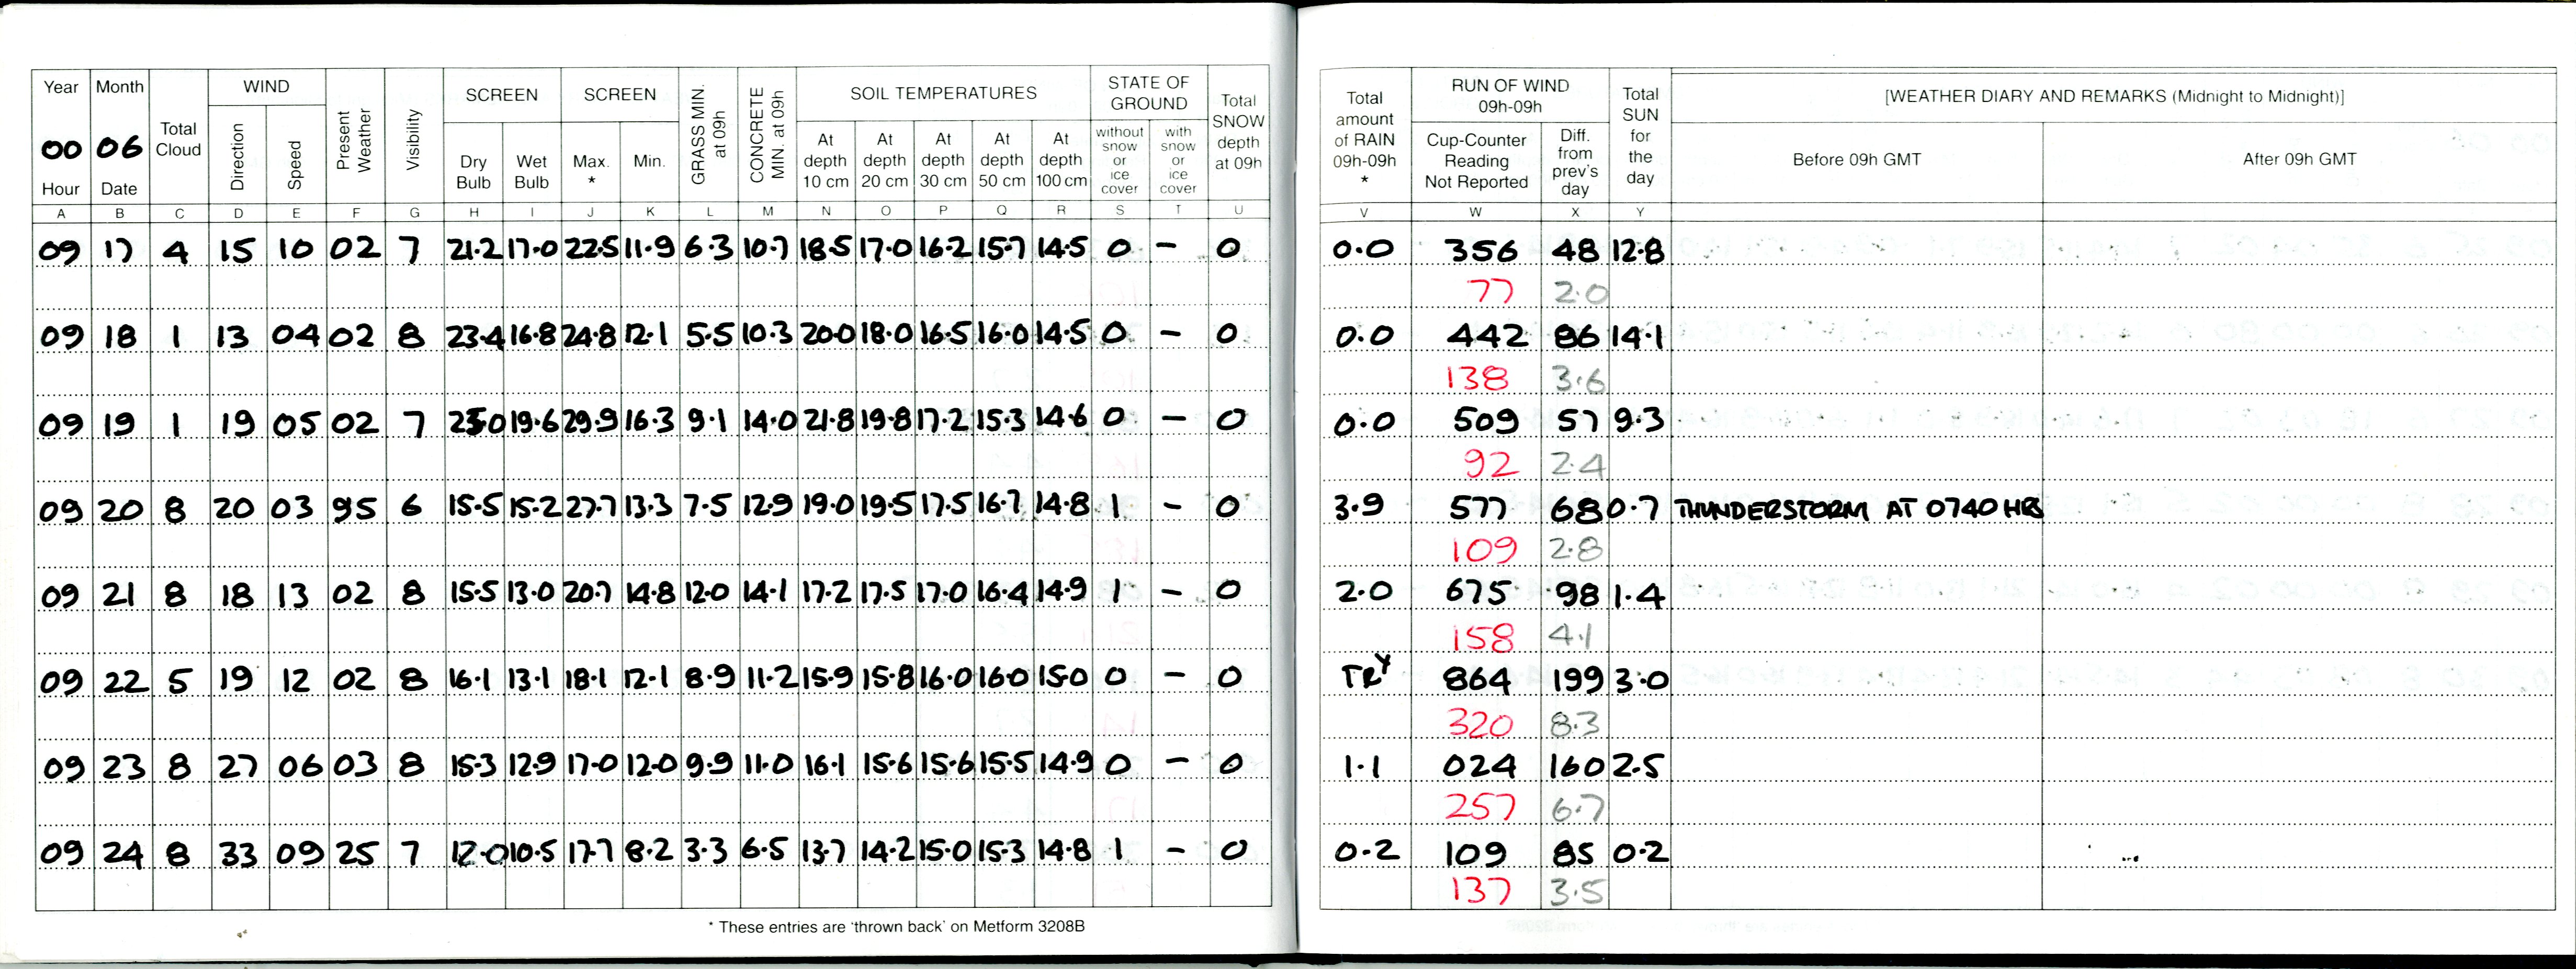 Year Month Total Cloud WIND Present Weather Visibility SCREEN SCREEN GRASS MIN. at 09h CONCRETE MIN. at 09h SOIL TEMPERATURES STATE OF GROUND Total SNOW depth at 09h Total amount of RAIN 09h-09h * RUN OF WIND 09h-09h Total SUN for the day [WEATHER DIARY AND REMARKS (Midnight to Midnight)]
00 06 Direction Speed Dry Bulb Wet Bulb Max. * Min. At depth 10 cm At depth 20 cm At depth 30 cm At depth 50 cm At depth 100 cm without snow or ice cover with snow or ice cover Cup-Counter Reading Not Reported Diff. from prev's day Before 09h GMT After 09h GMT
Hour Date
A B C D E F G H I J K L M N O P Q R S T U V W X Y
09 17 4 15 10 02 7 21.2 17.0 22.5 11.9 6.3 10.7 18.5 17.0 16.2 15.7 14.5 0 - 0 0.0 356 48 12.8
77 2.0
09 18 1 13 04 02 8 23.4 16.8 24.8 12.1 5.5 10.3 20.0 18.0 16.5 16.0 14.5 0 - 0 0.0 442 86 14.1
138 3.6
09 19 1 19 05 02 7 25.0 19.6 29.9 16.3 9.1 14.0 21.8 19.8 17.2 15.3 14.6 0 - 0 0.0 509 57 9.3
92 2.4
09 20 8 20 03 95 6 15.5 15.2 27.7 13.3 7.5 12.9 19.0 19.5 17.5 16.7 14.8 1 - 0 3.9 577 68 0.7 THUNDERSTORM AT 0740 HRS
109 2.8
09 21 8 18 13 02 8 15.5 13.0 20.7 14.8 12.0 14.1 17.2 17.5 17.0 16.4 14.9 1 - 0 2.0 675 98 1.4
158 4.1
09 22 5 19 12 02 8 16.1 13.1 18.1 12.1 8.9 11.2 15.9 15.8 16.0 16.0 15.0 0 - 0 TRY 864 199 3.0
320 8.3
09 23 8 27 06 03 8 15.3 12.9 17.0 12.0 9.9 11.0 16.1 15.6 15.6 15.5 14.9 0 - 0 1.1 024 160 2.5
257 6.7
09 24 8 33 09 25 7 12.0 10.5 17.7 8.2 3.3 6.5 13.7 14.2 15.0 15.3 14.8 1 - 0 0.2 109 85 0.2
137 3.5
* These entries are 'thrown back' on Metform 3208B